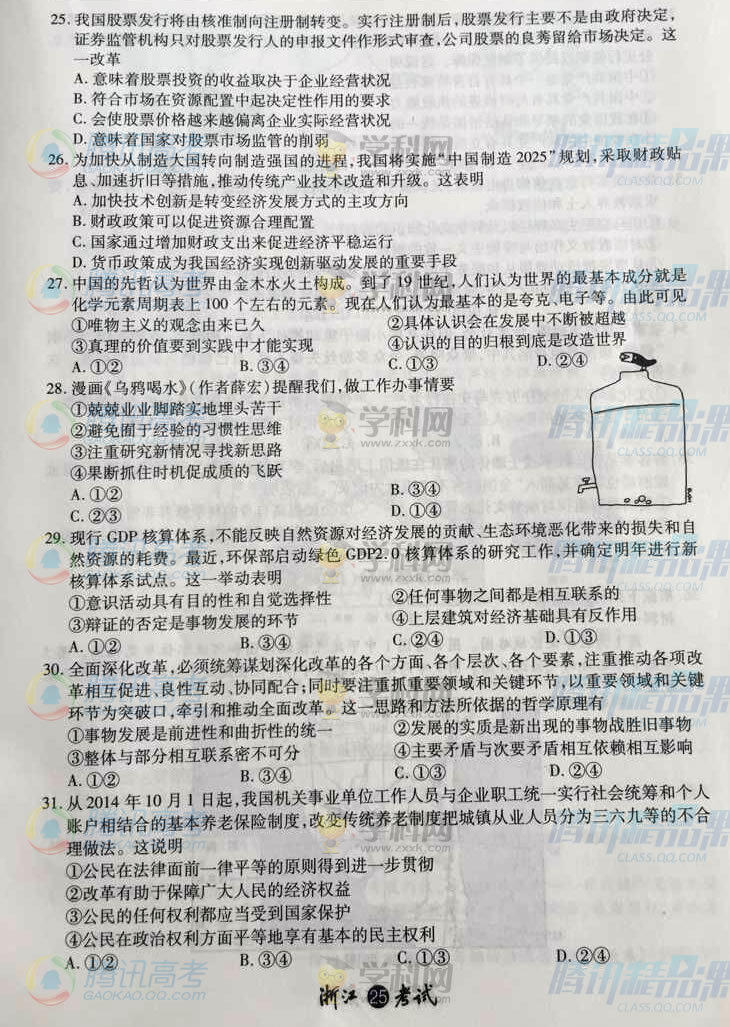 25. 我国股票发行将由核准制向注册制转变。实行注册制后，股票发行主要不是由政府决定，
证券监管机构只对股票发行人的申报文件作形式审查，公司股票的良莠留给市场决定。这
一改革
A. 意味着股票投资的收益取决于企业经营状况
B. 符合市场在资源配置中起决定性作用的要求
C. 会使股票价格越来越偏离企业实际经营状况
D. 意味着国家对股票市场监管的削弱
26. 为加快从制造大国转向制造强国的进程，我国将实施“中国制造 2025”规划，采取财政贴
息、加速折旧等措施，推动传统产业技术改造和升级。这表明
A. 加快技术创新是转变经济发展方式的主攻方向
B. 财政政策可以促进资源合理配置
C. 国家通过增加财政支出来促进经济平稳运行
D. 货币政策成为我国经济实现创新驱动发展的重要手段
27. 中国的先哲认为世界由金木水火土构成。到了 19 世纪，人们认为世界的最基本成分就是
化学元素周期表上 100 个左右的元素。现在人们认为最基本的是夸克、电子等。由此可见
①唯物主义的观念由来已久 ②具体认识会在发展中不断被超越
③真理的价值要到实践中才能实现 ④认识的目的归根到底是改造世界
A. ①② B. ③④ C. ①③ D. ②④
28. 漫画《乌鸦喝水》（作者薛宏）提醒我们，做工作办事情要
①兢兢业业脚踏实地埋头苦干
②避免囿于经验的习惯性思维
③注重研究新情况寻找新思路
④果断抓住时机促成质的飞跃
A. ①② B. ③④
C. ②③ D. ①④
29. 现行 GDP 核算体系，不能反映自然资源对经济发展的贡献、生态环境恶化带来的损失和自
然资源的耗费。最近，环保部启动绿色 GDP2.0 核算体系的研究工作，并确定明年进行新
核算体系试点。这一举动表明
①意识活动具有目的性和自觉选择性 ②任何事物之间都是相互联系的
③辩证的否定是事物发展的环节 ④上层建筑对经济基础具有反作用
A. ①② B. ③④ C. ②④ D. ①③
30. 全面深化改革，必须统筹谋划深化改革的各个方面、各个层次、各个要素，注重推动各项改
革相互促进、良性互动、协同配合；同时要注重抓重要领域和关键环节，以重要领域和关键
环节为突破口，牵引和推动全面改革。这一思路和方法所依据的哲学原理有
①事物发展是前进性和曲折性的统一 ②发展的实质是新出现的事物战胜旧事物
③整体与部分相互联系密不可分 ④主要矛盾与次要矛盾相互依赖相互影响
A. ①② B. ③④ C. ①③ D. ②④
31. 从 2014 年 10 月 1 日起，我国机关事业单位工作人员与企业职工统一实行社会统筹和个人
账户相结合的基本养老保险制度，改变传统养老制度把城镇从业人员分为三六九等的不合
理做法。这说明
①公民在法律面前一律平等的原则得到进一步贯彻
②改革有助于保障广大人民的经济权益
③公民的任何权利都应当受到国家保护
④公民在政治权利方面平等地享有基本的民主权利
A. ①② B. ③④ C. ①③ D. ②④
浙江 25 考试
腾讯高考
GAOKAO.QQ.COM
学科网
www.zxxk.com
腾讯精品课
CLASS.QQ.COM